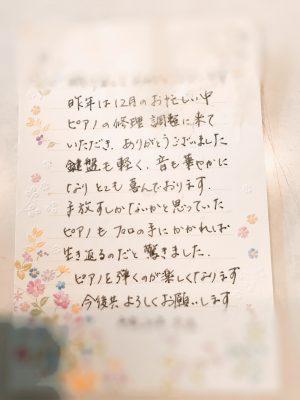 昨年は12月のお忙しい中
ピアノの修理 調整に来て
いただき、ありがとうございました
鍵盤も軽く、音も華やかに
なりとても喜んでおります。
手放すしかないかと思っていた
ピアノも プロの手にかかれば
生き返るのだと驚きました。
ピアノを弾くのが楽しくなります
今後共よろしくお願いします